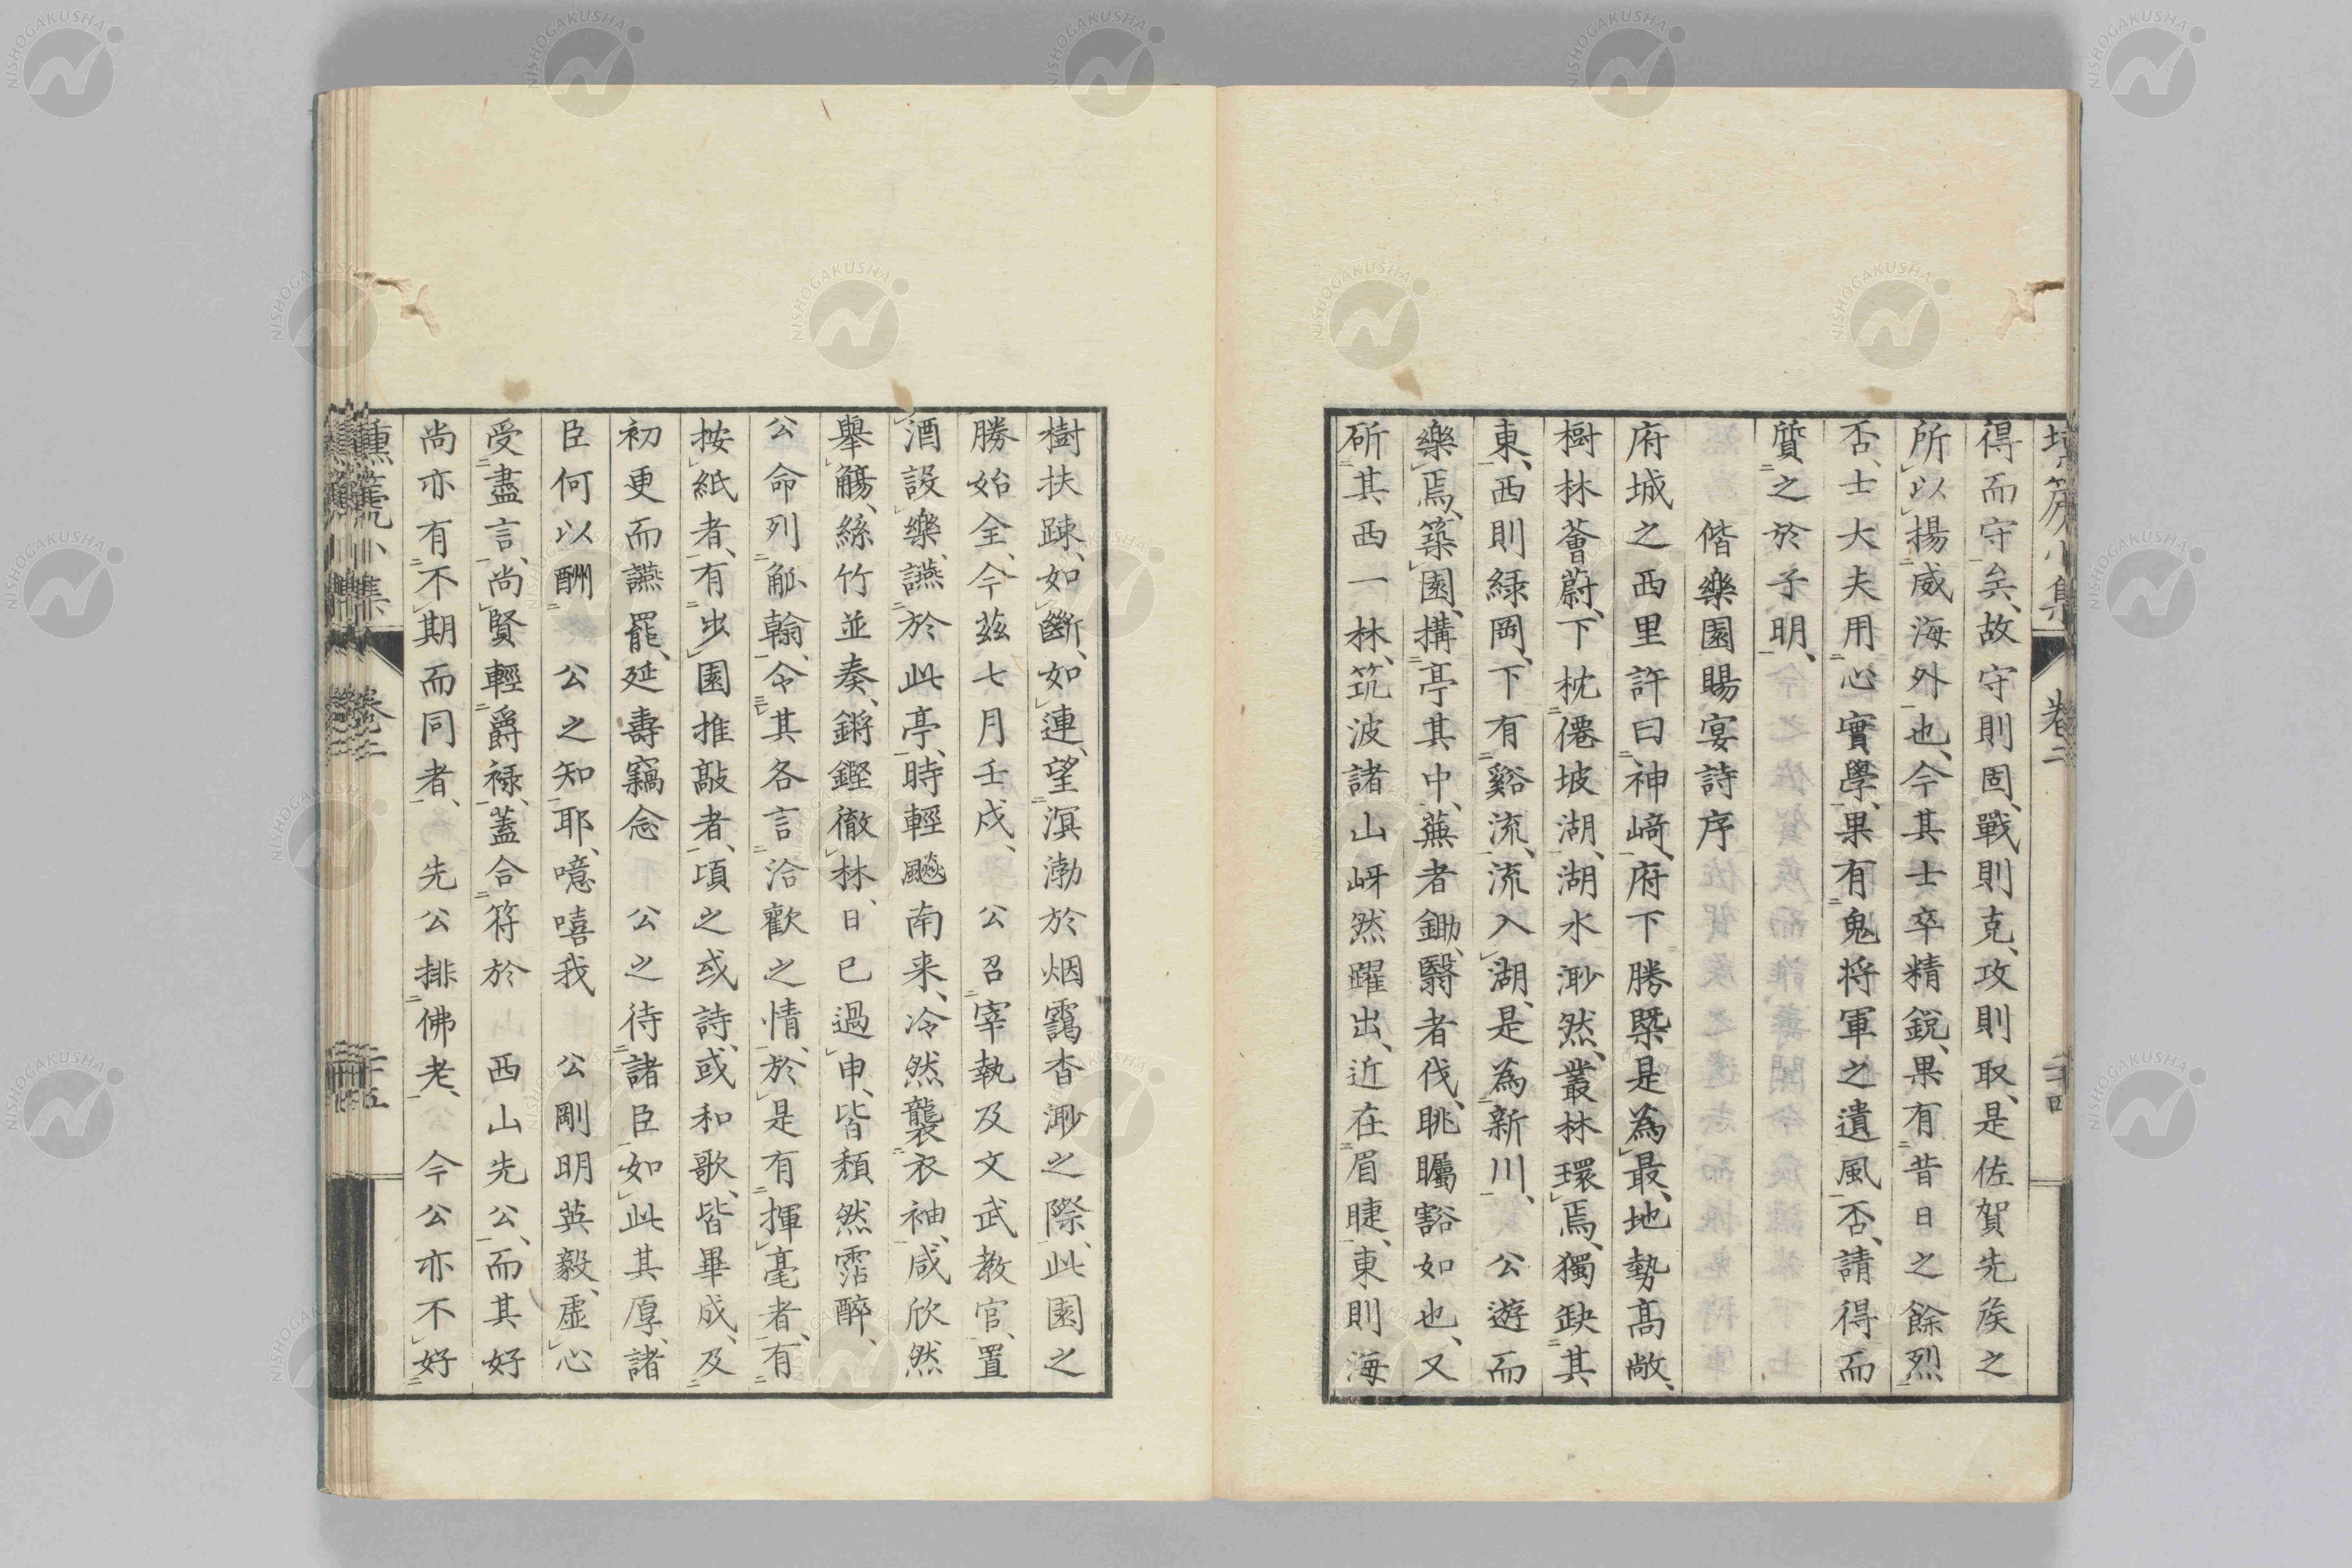 得而守矣、故守則固、戰則克、攻則取、是佐賀先侯之
所以揚威海外也、今其士卒精鋭、果有昔日之餘烈
否、士大夫用心實學、果有鬼将軍之遺風否、請得而
質之於子明、
偕樂園賜宴詩序
府城之西里許曰神﨑、府下勝槩是為最、地勢高敞、
樹林薈蔚、下枕僊坡湖、湖水渺然、叢林環焉、獨缺其
東、西則緑岡、下有谿流、流入湖、是為新川、公遊而
樂焉、築園、搆亭其中、蕪者鋤、翳者伐、眺矚豁如也、又
斫其西一林、筑波諸山岈然躍出、近在眉睫、東則海
樹扶踈、如斷、如連、望溟渤於烟靄杳渺之際、此園之
勝始全、今茲七月壬戌、公召宰執及文武教官、置
酒設樂、讌於此亭、時輕颷南来、冷然襲衣袖、咸欣然
舉觴、絲竹並奏、鏘鏗徹林、日已過申、皆頽然霑醉、
公命列觚翰、令其各言洽歡之情、於是有揮毫者、有
按紙者、有出園推敲者、頃之或詩、或和歌、皆畢成、及
初更而讌罷、延壽竊念公之待諸臣如此其厚、諸
臣何以酬公之知耶、噫嘻我公剛明英毅、虚心
受盡言、尚賢輕爵禄、蓋合符於西山先公、而其好
尚亦有不期而同者、先公排佛老、今公亦不好
壎篪小集 卷二 二十四
壎篪小集 卷二 二十五
NISHOGAKUSHA